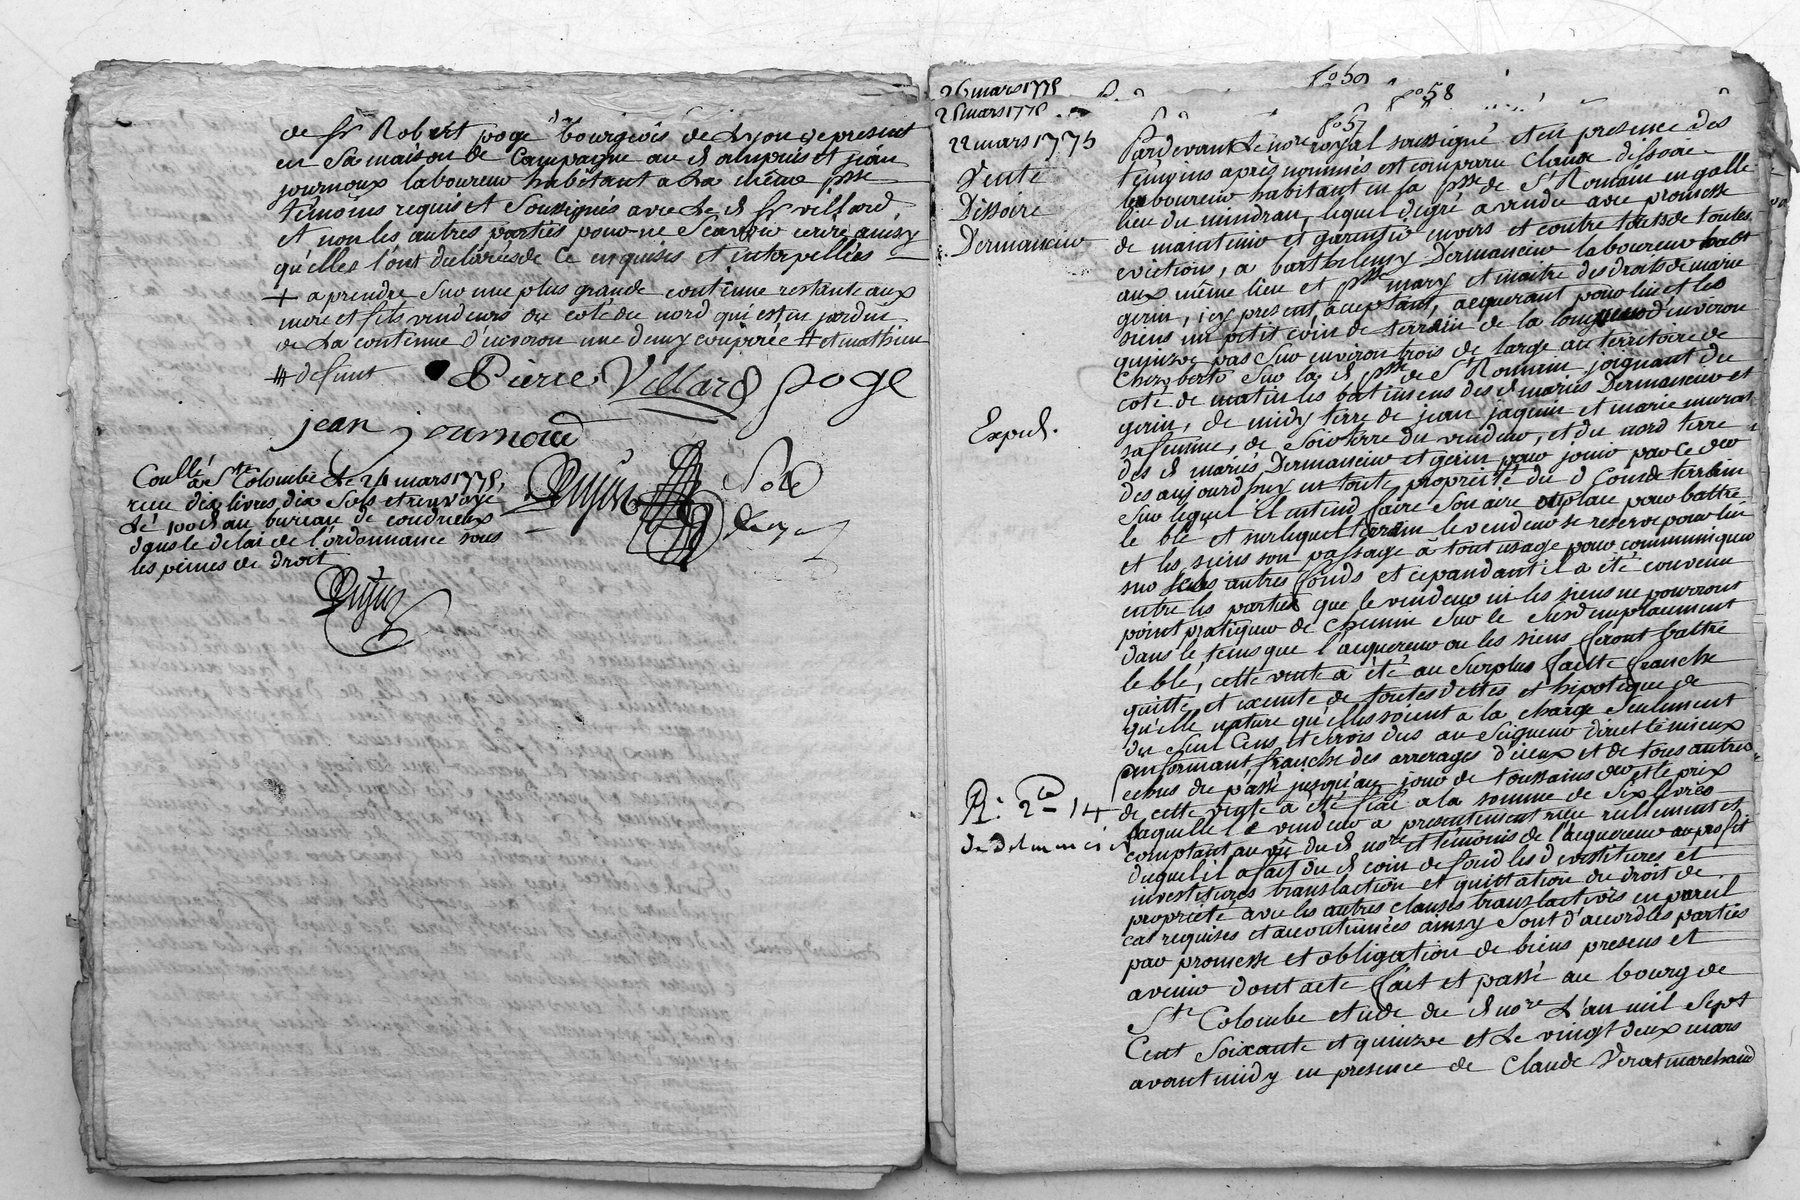 de Sr Robert poge bourgeois de Lyon de present
en sa maison de Campagne au d ampuis et jean
journoux laboureur habitant a la même psse
témoins requis et soussignés avec le d Sr villard,
et non les autres parties pour ne scavoir ecrire ainsy
qu'elles l'ont declarés de ce enquises et interpellées
+ a prendre sur une plus grande contenue restante aux
mere et fils vendeurs du coté du nord qui est en jardin
de la contenue d'environ une demy couperée # et mathieu
# defunt
Pierre Villard poge
jean journoud
Conllé
a Ste Colombe le 24 mars 1775,
reçu dix livres dix sols et renvoyé
le 100d au bureau de condrieux
dans le delai de l'ordonnance sous
les peines de droit
26 mars 1775
fo 59
25 mars 1775
fo 58
22 mars 1775
fo 57
Vente
Dissoire
Dermancieu
Expéd.
Pardevant le nore royal soussigné et en presence des
temoins après nommés est comparu Claude dissoire
laboureur habitant en la psse de St Romain en galle
lieu du mindran, lequel de gré a vendu avec promesse
de maintenir et garentir envers et contre tous de toutes
evictions, a barthelemy Dermancieu laboureur habt
aux même lieu et psse mary et maitre des droits de marie
gerin, icy present, acceptant, acquerant pour lui et les
siens un petit coin de terrein de la longueur d'environ
quinze pas sur environ trois de large au territoire de
Cherzberte sur la d psse de St Romain joignant du
coté de matin les batimens des d mariés Dermancieu et
gerin, de midy terre de jean jaquin et marie muras
sa femme, de soir terre du vendeur, et du nord terre
des d mariés Dermancieu et gerin pour jouir par le der
des aujourd'huy en toute propriété du d Coin de terrein
sur lequel il entend faire son aire ou place pour battre
le blé et sur lequel terrein le vendeur se reserve pour lui
et les siens son passage à tout usage pour communiquer
sur ses autres fonds et cependant il a été convenu
entre les parties que le vendeur ni les siens ne pourront
point pratiquer de chemin sur le susd emplacement
dans le tems que l'acquereur ou les siens feront battre
le blé, cette vente a été au surplus faitte franche
quitte et exemte de toutes dettes et hipoteque de
qu'elle nature qu'elles soient a la charge seulement
du seul Cens et servis dus au Seigneur direct le mieux
informant franche des arrerages d'iceux et de tous autres
echus du passé jusqu'au jour de toussains der et le prix
de cette vente a été fixé a la somme de six livres
laquelle le vendeur a presentement reçu reellement et
comptant au vû du d nore et témoins de l'acquereur au profit
duquel il a fait du d coin de fond les devestitures et
investitures translaction et quittation du droit de
proprieté avec les autres clauses translactives en pareil
cas requises et acoutumées ainsy sont d'accord les parties
par promesse et obligation de biens presens et
avenir dont acte fait et passé au bourg de
Ste Colombe etude du d nore l'an mil Sept
Cent Soixante et quinze et le vingt deux mars
avant midy en presence de Claude Verat marchand